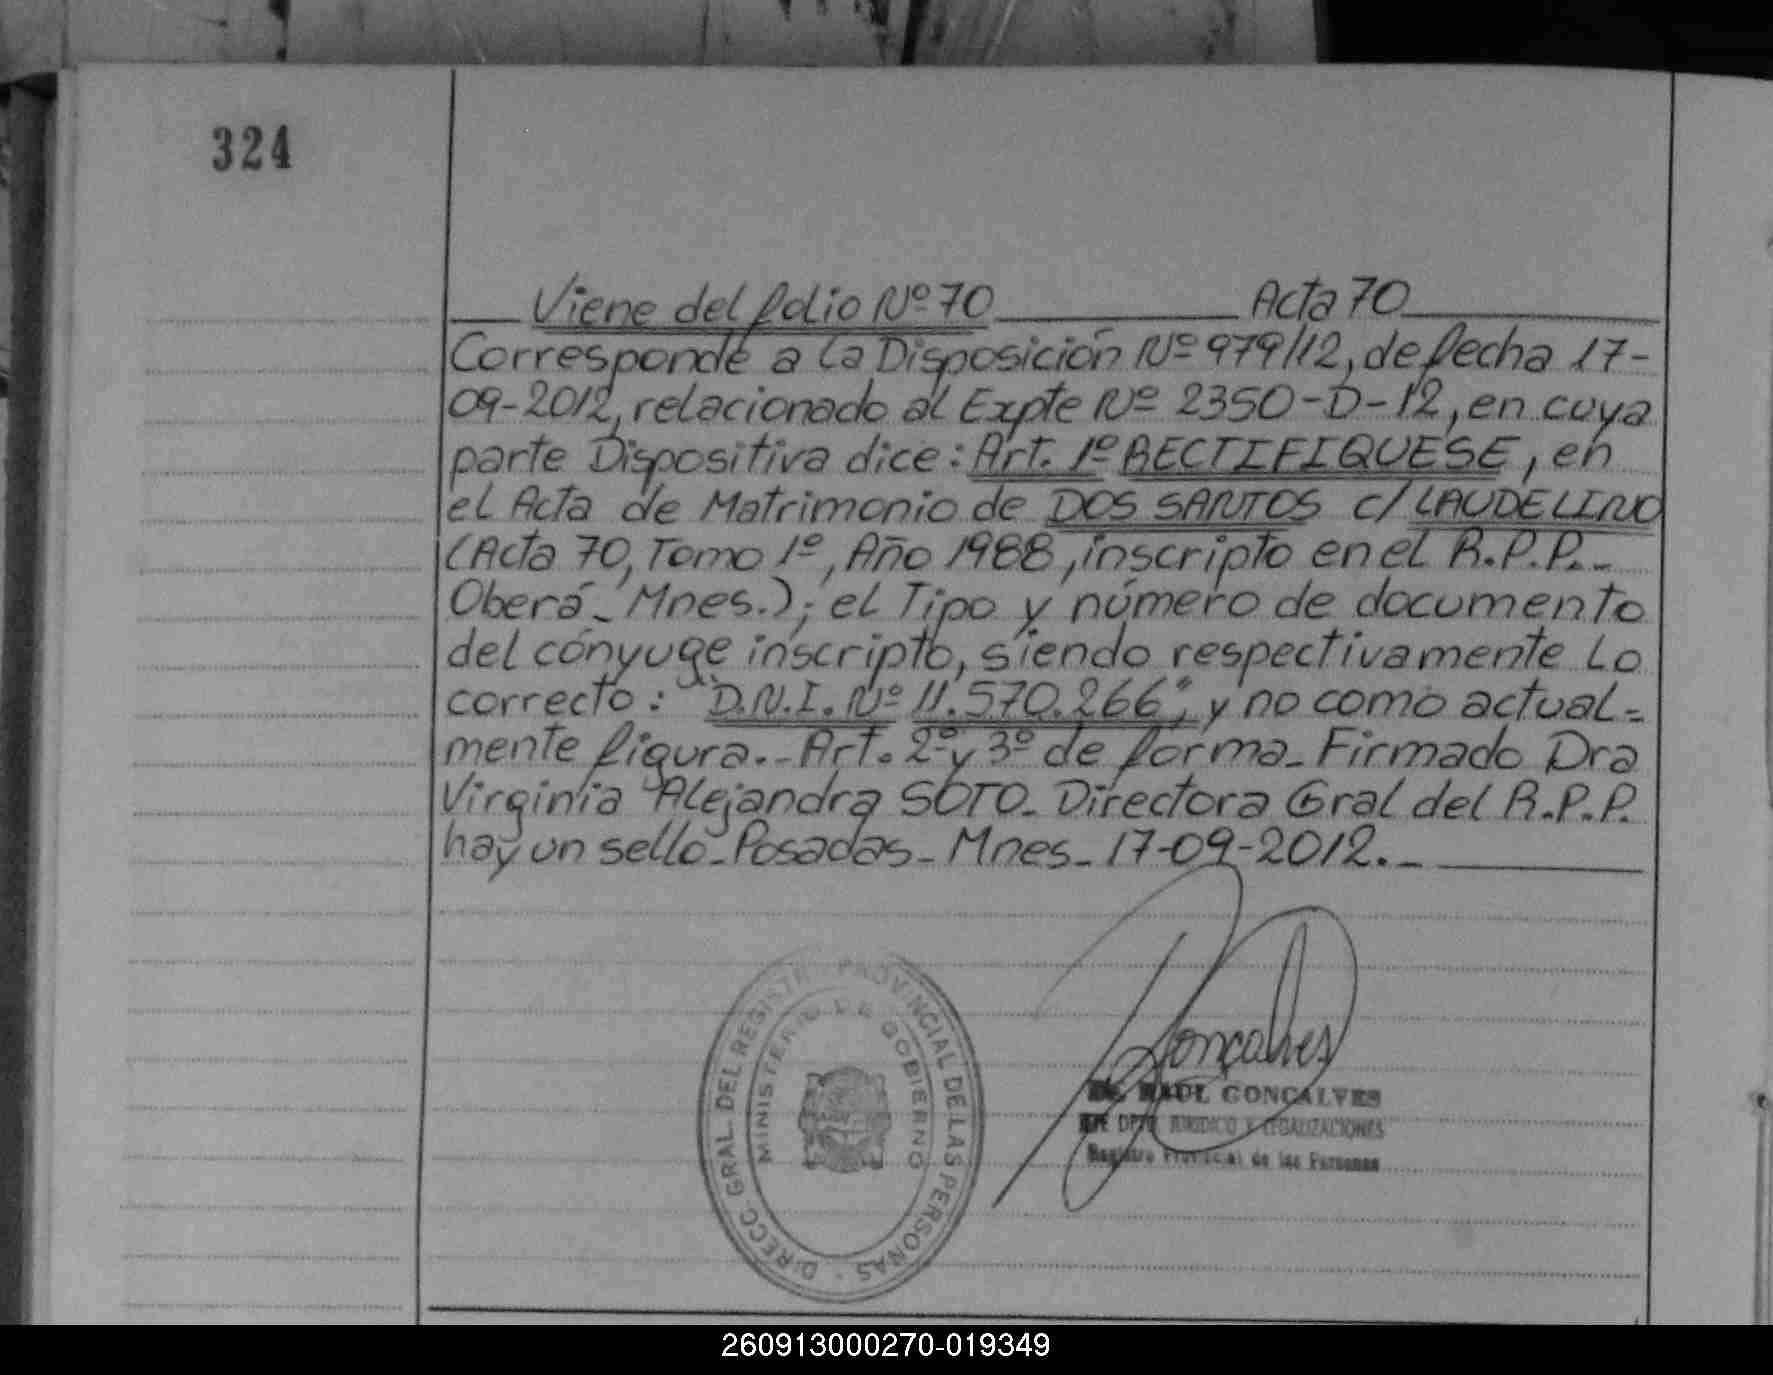 324
Viene del folio Nº 70 Acta 70
Corresponde a la Disposición Nº 979/12, de fecha 17-
09-2012, relacionado al Expte Nº 2350-D-12, en cuya
parte Dispositiva dice: Art. 1º RECTIFIQUESE, en
el Acta de Matrimonio de DOS SANTOS c/ LAUDELINO
(Acta 70, Tomo 1º, Año 1988, inscripto en el R.P.P.-
Oberá- Mnes.); el Tipo y número de documento
del cónyuge inscripto, siendo respectivamente lo
correcto: "D.N.I. Nº 11.570.266", y no como actual-
mente figura.- Art. 2º y 3º de forma- Firmado Dra
Virginia Alejandra SOTO- Directora Gral del R.P.P.
hay un sello- Posadas- Mnes- 17-09-2012.-
DIRECC. GRAL. DEL REGISTR PROVINCIAL DE LAS PERSONAS -
MINISTERIO DE GOBIERNO
Gonçalves
RAUL GONCALVES
DPTO JURIDICO Y LEGALIZACIONES
Registro Provincial de las Personas
260913000270-019349